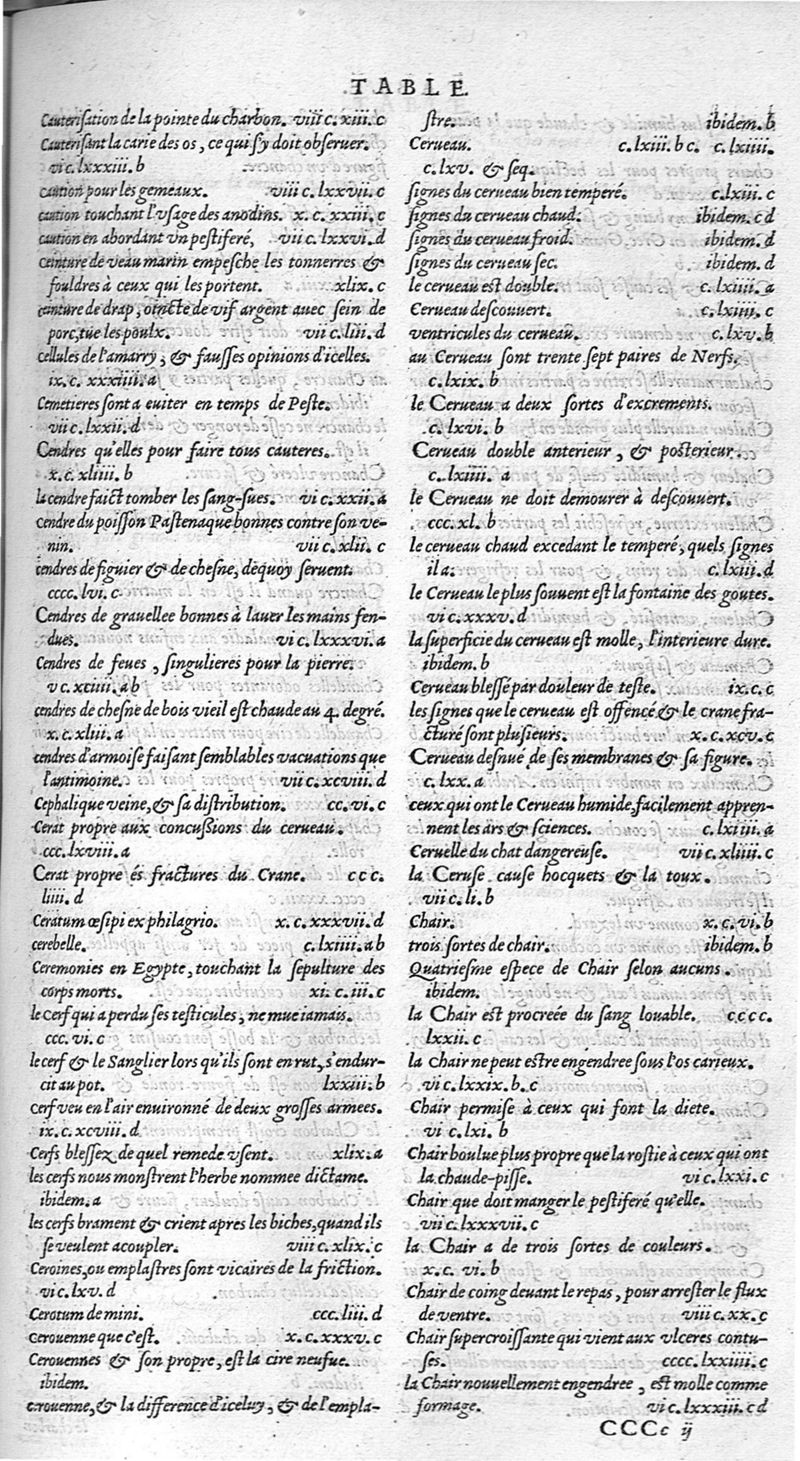 TABLE.
Cauterisation de la pointe du charbon. viii c. xiii. c
Cauterisant la carie des os, ce qui s'y doit obseruer.
vi c. lxxxiii. b
caution pour les gemeaux. viii c. lxxvii. c
caution touchant l'vsage des anodins. x. c. xxiii. c
caution en abordant vn pestiferé, vii c. lxxvi. d
ceinture de veau marin empesche les tonnerres &
fouldres à ceux qui les portent. xlix. c
ceinture de drap, oincte de vif argent auec sein de
porc, tue les poulx. vii c. liii. d
cellules de l'amarry, & fausses opinions d'icelles.
ix. c. xxxiiii. a
Cemetieres sont a euiter en temps de Peste.
vii c. lxxii. d
Cendres qu'elles pour faire tous cauteres.
x. c. xliiii. b
la cendre faict tomber les sang-sues. vi c. xxii. a
cendre du poisson Pastenaque bonnes contre son ve-
nin. vii c. xlii. c
cendres de figuier & de chesne, dequoy seruent.
cccc. lvi. c
Cendres de grauellee bonnes à lauer les mains fen-
dues. vi c. lxxxvi. a
Cendres de feues, singulieres pour la pierre.
v c. xciiii. a b
cendres de chesne de bois vieil est chaude au 4. degré.
x. c. xliii. a
cendres d'armoise faisant semblables vacuations que
l'antimoine. vii c. xcviii. d
Cephalique veine, & sa distribution. cc. vi. c
Cerat propre aux concussions du cerueau.
ccc. lxviii. a
Cerat propre és fractures du Crane. ccc.
liiii. d
Ceratum œsipi ex philagrio. x. c. xxxvii. d
cerebelle. c. lxiiii. a b
Ceremonies en Egypte, touchant la sepulture des
corps morts. xi. c. iii. c
le cerf qui a perdu ses testicules, ne mue iamais.
ccc. vi. c
le cerf & le Sanglier lors qu'ils sont en rut, s'endur-
cit au pot. lxxiii. b
Cerf veu en l'air enuironné de deux grosses armees.
ix. c. xcviii. d
Cerfs blessez de quel remede vsent. xlix. a
les cerfs nous monstrent l'herbe nommee dictame.
ibidem. a
les cerfs brament & crient apres les biches, quand ils
se veulent acoupler. viii c. xlix. c
Ceroines, ou emplastres sont vicaires de la friction.
vi c. lxv. d
Cerotum de mini. ccc. liii. d
cerouenne que c'est. x. c. xxxv. c
Cerouennes & son propre, est la cire neufue.
ibidem.
cerouenne, & la difference d'iceluy, & de l'empla-
stre. ibidem. b
Cerueau. c. lxiii. b c. c. lxiiii.
c. lxv. & seq.
signes du cerueau bien temperé. c. lxiii. c
signes du cerueau chaud. ibidem. c d
signes du cerueau froid. ibidem. d
signes du cerueau sec. ibidem. d
le cerueau est double. c. lxiiii. a
Cerueau descouuert. c. lxiiii. c
ventricules du cerueau. c. lxv. b
au Cerueau sont trente sept paires de Nerfs.
c. lxix. b
le Cerueau a deux sortes d'excrements.
c. lxvi. b
Cerueau double anterieur, & posterieur.
c. lxiiii. a
le Cerueau ne doit demourer à descouuert.
ccc. xl. b
le cerueau chaud excedant le temperé, quels signes
il a. c. lxiii. d
le Cerueau le plus souuent est la fontaine des goutes.
vi c. xxxv. d
la superficie du cerueau est molle, l'interieure dure.
ibidem. b
Cerueau blessé par douleur de teste. ix. c. c
les signes que le cerueau est offencé & le crane fra-
cturé sont plusieurs. x. c. xcv. c
Cerueau desnué de ses membranes & sa figure.
c. lxx. a
ceux qui ont le Cerueau humide, facilement appren-
nent les ars & sciences. c. lxiiii. a
Ceruelle du chat dangereuse. vii c. xliiii. c
la Ceruse cause hocquets & la toux.
vii c. li. b
Chair. x. c. vi. b
trois sortes de chair. ibidem. b
Quatriesme espece de Chair selon aucuns.
ibidem.
la Chair est procreée du sang louable. cccc.
lxxii. c
la Chair ne peut estre engendree sous l'os carieux.
vi c. lxxix. b. c
Chair permise à ceux qui font la diete.
vi c. lxi. b
Chair boulue plus propre que la rostie à ceux qui ont
la chaude-pisse. vi c. lxxi. c
Chair que doit manger le pestiferé qu'elle.
vii c. lxxxvii. c
la Chair a de trois sortes de couleurs.
x. c. vi. b
Chair de coing deuant le repas, pour arrester le flux
de ventre. viii c. xx. c
Chair supercroissante qui vient aux vlceres contu-
ses. cccc. lxxiiii. c
la Chair nouuellement engendree, est molle comme
formage. vi c. lxxxiii. c d
CCCc ij